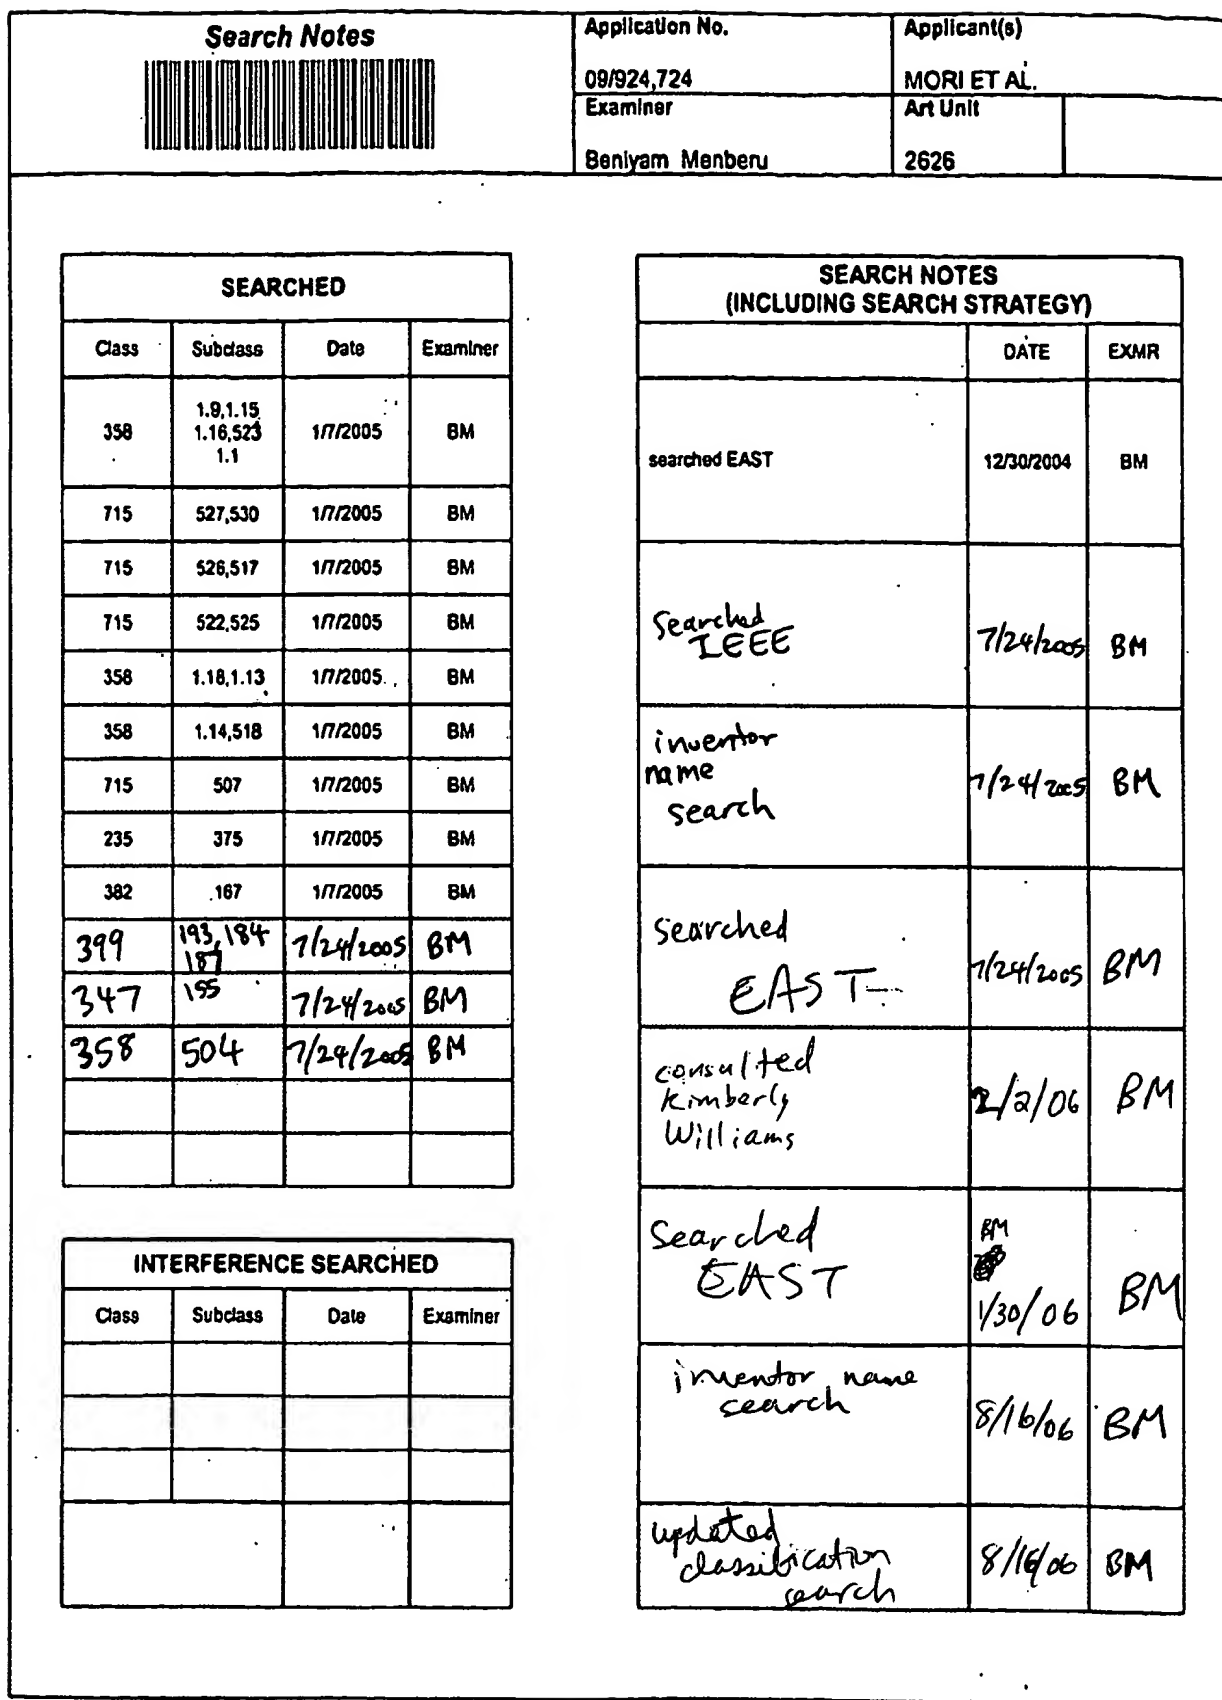 Search Notes
Application No.
09/924,724
Applicant(s)
MORI ET AL.
Examiner
Beniyam Menberu
Art Unit
2626
SEARCHED
Class Subclass Date Examiner
358 1.9,1.15 1/7/2005 BM
1.16,523
1.1
715 527,530 1/7/2005 BM
715 526,517 1/7/2005 BM
715 522,525 1/7/2005 BM
358 1.18,1.13 1/7/2005 BM
358 1.14,518 1/7/2005 BM
715 507 1/7/2005 BM
235 375 1/7/2005 BM
382 167 1/7/2005 BM
399 193,184 7/24/2005 BM
187
347 155 7/24/2005 BM
358 504 7/24/2005 BM
INTERFERENCE SEARCHED
Class Subclass Date Examiner
SEARCH NOTES
(INCLUDING SEARCH STRATEGY)
DATE EXMR
searched EAST 12/30/2004 BM
Searched
IEEE 7/24/2005 BM
inventor
name
search 7/24/2005 BM
searched
EAST 7/24/2005 BM
consulted
Kimberly
Williams 2/2/06 BM
Searched BM
EAST
1/30/06 BM
inventor name
search 8/16/06 BM
updated
classification
search 8/16/06 BM